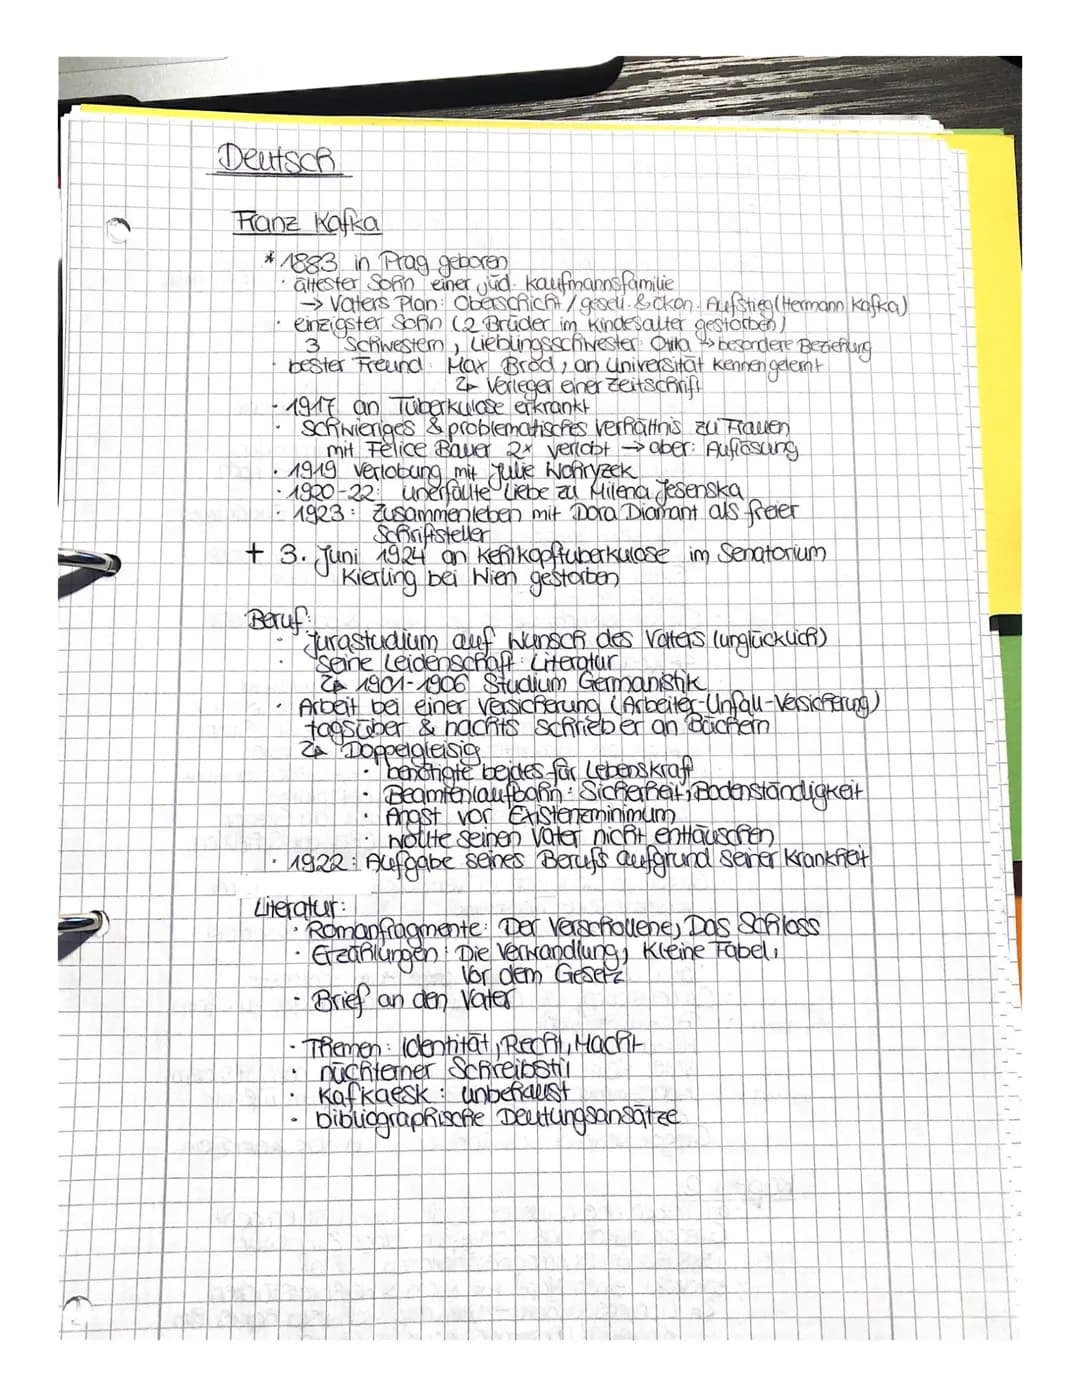 Deutsch
Franz Kafka
* 1883 in Prag geboren
· ältester Sohn einer jüd. Kaufmannsfamilie
→ Vaters Plan: Oberschicht / gesell. & ökon. Aufstieg (Hermann Kafka)
· einzigster Sohn (2 Brüder im Kindesalter gestorben)
3 Schwestern, Lieblingsschwester: Ottla ↳ besondere Beziehung
· bester Freund: Max Brod, an Universität kennen gelernt
↳ Verleger einer Zeitschrift
· 1917 an Tuberkulose erkrankt
· schwieriges & problematisches Verhältnis zu Frauen
mit Felice Bauer 2x verlobt → aber: Auflösung
· 1919 Verlobung mit Julie Wohryzek
· 1920-22: unerfüllte Liebe zu Milena Jesenska
· 1923: Zusammenleben mit Dora Diamant als freier
Schriftsteller
+ 3. Juni 1924 an Kehlkopftuberkulose im Senatorium
Kierling bei Wien gestorben
Beruf:
· Jurastudium auf Wunsch des Vaters (unglücklich)
· seine Leidenschaft: Literatur
↳ 1901-1906 Studium Germanistik
· Arbeit bei einer Versicherung (Arbeiter-Unfall-Versicherung)
tagsüber & nachts schrieb er an Büchern
↳ Doppelgleisig
· benötigte beides für Lebenskraft
· Beamtenlaufbahn: Sicherheit, Bodenständigkeit
· Angst vor Existenzminimum
· wollte seinen Vater nicht enttäuschen
· 1922: Aufgabe seines Berufs aufgrund seiner Krankheit
Literatur:
· Romanfragmente: Der Verschollene, Das Schloss
· Erzählungen: Die Verwandlung, Kleine Fabel,
Vor dem Gesetz
· Brief an den Vater
· Themen: Identität, Recht, Macht
· nüchterner Schreibstil
· Kafkaesk: unbehaust
· bibliographische Deutungsansätze